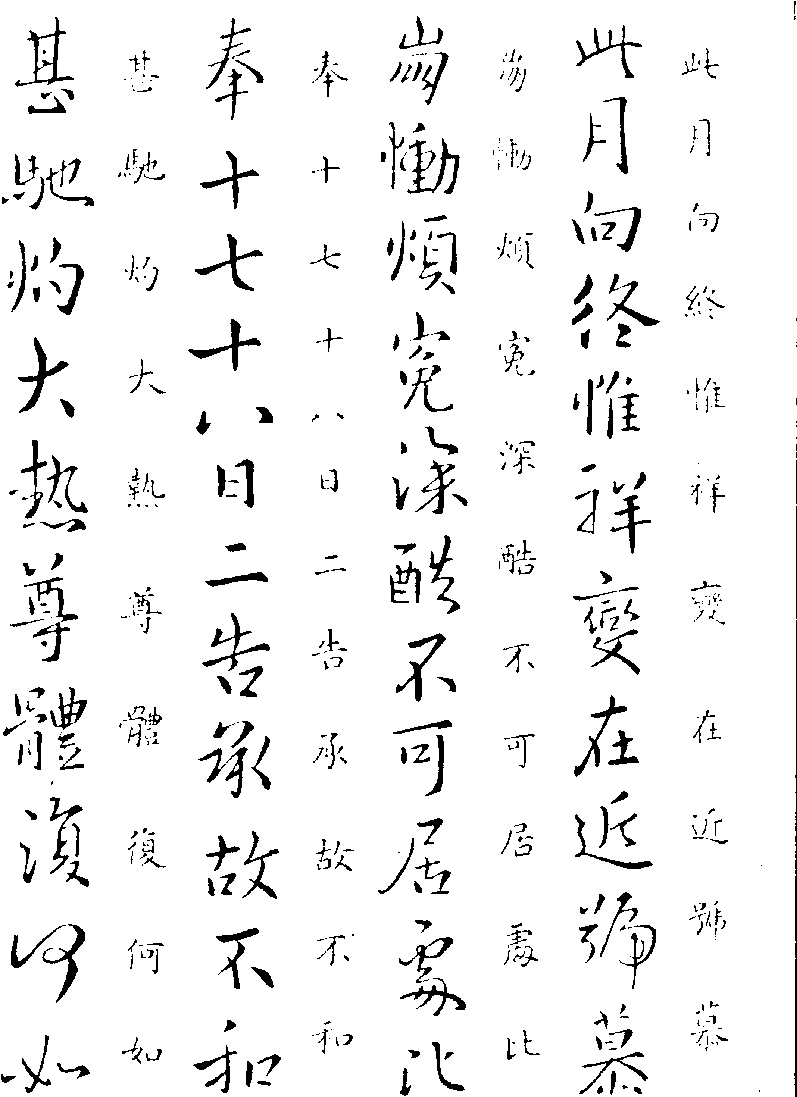 此月向終惟祥變在近號慕
此月向終惟祥變在近號慕
崩慟煩冤深酷不可居處比
崩慟煩冤深酷不可居處比
奉十七十八日二告承故不和
奉十七十八日二告承故不和
甚馳灼大熱尊體復何如
甚馳灼大熱尊體復何如